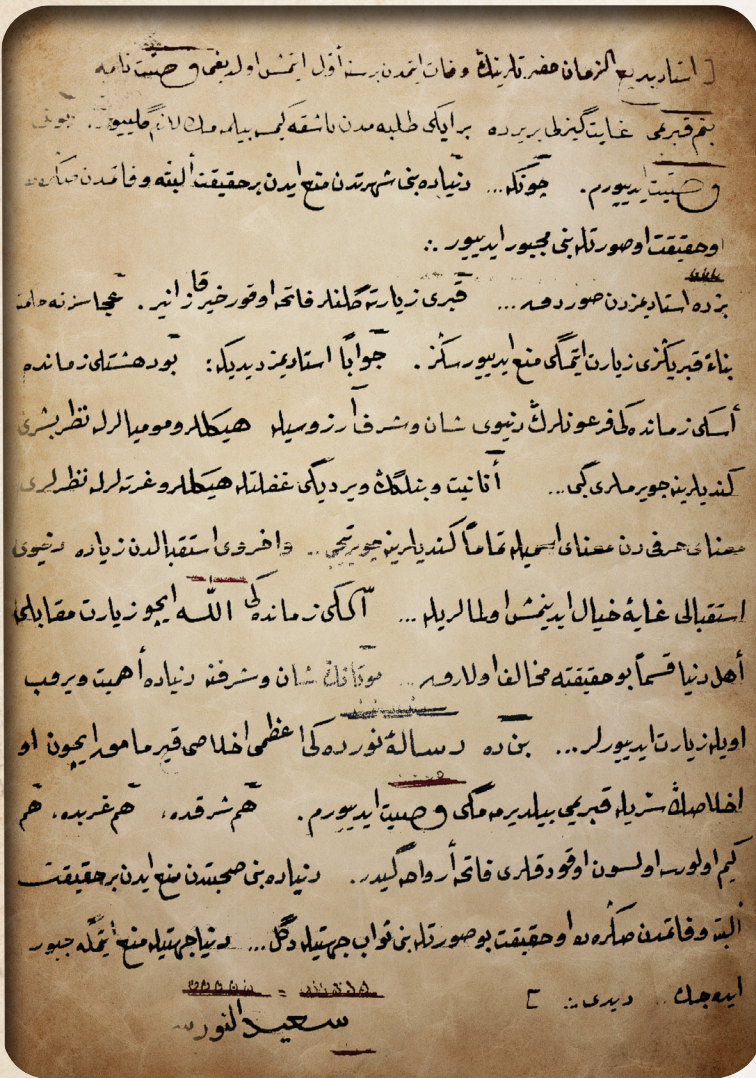 [ استاد بديع الزمان حضرتلرينڭ وفات ايتمدن برسنه أوّل ايتمش اولديغى وصيّت نامه
بنم قبرمى غايت گيزلى بريرده بر ايكى طلبه‌مدن باشقه كيمسه بيلمه‌مك لازم گلييور. بونى
وصيّت ايدييورم. چونكه... دنياده بنى شهرتدن منع ايدن بر حقيقت ألبته وفاتمدن صڭره‌ده
او حقيقت او صورتله بنى مجبور ايدييور.:
بزده استاديمزدن صوردق... قبرى زيارته گلنلر فاتحه اوقور خير قازانير. عجبا سز نه حكمته
بناءً قبريڭزى زيارت ايتمگى منع ايدييورسڭز. جوابًا استاديمز ديديكه: بو دهشتلى زمانده
أسكى زمانده‌كى فرعونلرڭ دنيوى شان و شرف آرزوسيله هيكللر و موميالرله نظر بشرى
كنديلرينه چويرملرى گبى... أنانيت و بنلگڭ ويرديگى غفلتله هيكللر و غزته‌لرله نظرلرى
معناى حرفى‌دن معناى اسميله تمامًا كنديلرينه چويرتمه‌سى.. و اخروى استقبالدن زياده دنيوى
استقبالى غايهٔ خيال ايدينمش اولمالريله... أسكى زمانده‌كى اللّٰه ايچون زيارته مقابل
أهل دنيا قسمًا بو حقيقته مخالف اولارق... موتانڭ شان و شرفنه دنياده أهميت ويروب
اويله زيارت ايدييورلر... بن‌ده رسالهٔ نورده‌كى اعظمى اخلاصى قيرمامق ايچون او
اخلاصڭ سرّيله قبريمى بيلديرمه‌مگى وصيت ايدييورم. هم شرقده، هم غربده، هم
كيم اولورسه اولسون اوقودقلرى فاتحه أرواحه گيدر. دنياده بنى صحبتدن منع ايدن بر حقيقت
ألبته وفاتمدن صڭره‌ده او حقيقت بو صورتله بنى ثواب جهتيله دگل... دنيا جهتيله منع ايتمگه مجبور
ايده‌جك.. ديدى.: ]
سعيد النورسى